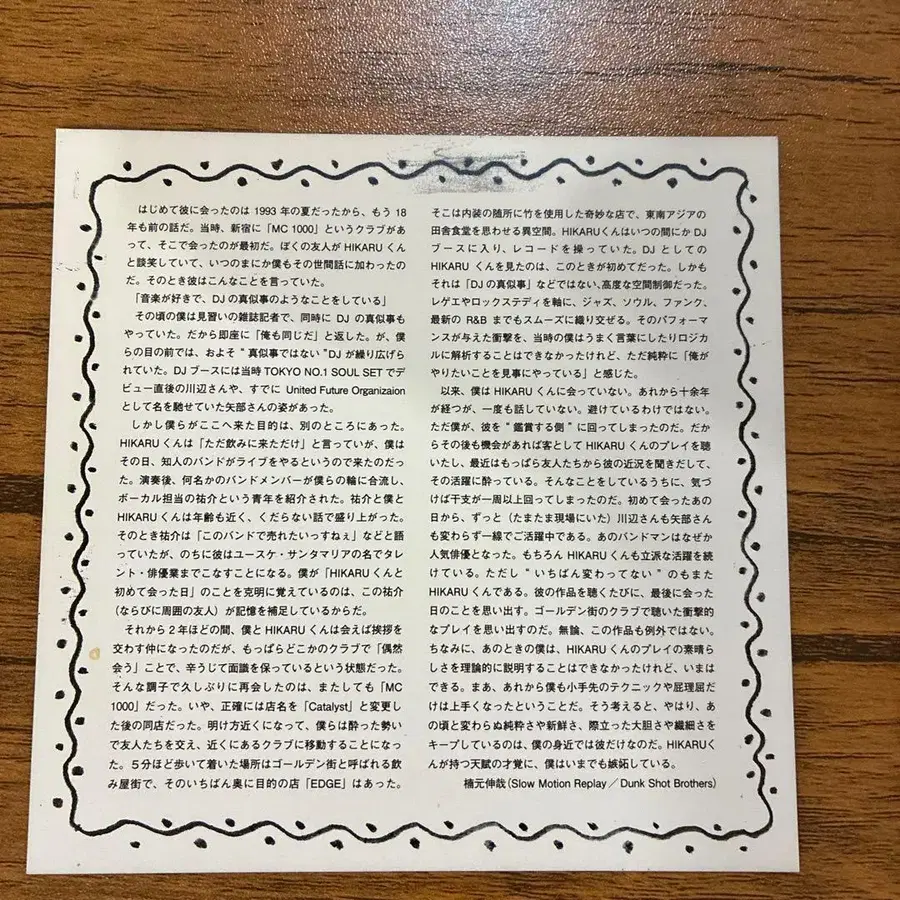 はじめて彼に会ったのは 1993 年の夏だったから、もう 18
年も前の話だ。当時、新宿に「MC 1000」というクラブがあ
って、そこで会ったのが最初だ。ぼくの友人が HIKARU くん
と談笑していて、いつのまにか僕もその世間話に加わったの
だ。そのとき彼はこんなことを言っていた。
「音楽が好きで、DJ の真似事のようなことをしている」
その頃の僕は見習いの雑誌記者で、同時に DJ の真似事も
やっていた。だから即座に「俺も同じだ」と返した。が、僕
らの目の前では、およそ“真似事ではない”DJ が繰り広げら
れていた。DJ ブースには当時 TOKYO NO.1 SOUL SET でデ
ビュー直後の川辺さんや、すでに United Future Organizaion
として名を馳せていた矢部さんの姿があった。
しかし僕らがここへ来た目的は、別のところにあった。
HIKARU くんは「ただ飲みに来ただけ」と言っていが、僕は
その日、知人のバンドがライブをやるというので来たのだっ
た。演奏後、何名かのバンドメンバーが僕らの輪に合流し、
ボーカル担当の祐介という青年を紹介された。祐介と僕と
HIKARU くんは年齢も近く、くだらない話で盛り上がった。
そのとき祐介は「このバンドで売れたいっすねぇ」などと語
っていたが、のちに彼はユースケ・サンタマリアの名でタレ
ント・俳優業までこなすことになる。僕が「HIKARU くんと
初めて会った日」のことを克明に覚えているのは、この祐介
（ならびに周囲の友人）が記憶を補足しているからだ。
それから２年ほどの間、僕と HIKARU くんは会えば挨拶を
交わす仲になったのだが、もっぱらどこかのクラブで「偶然
会う」ことで、辛うじて面識を保っているという状態だった。
そんな調子で久しぶりに再会したのは、またしても「MC
1000」だった。いや、正確には店名を「Catalyst」と変更し
た後の同店だった。明け方近くになって、僕らは酔った勢い
で友人たちを交え、近くにあるクラブに移動することになっ
た。５分ほど歩いて着いた場所はゴールデン街と呼ばれる飲
み屋街で、そのいちばん奥に目的の店「EDGE」はあった。
そこは内装の随所に竹を使用した奇妙な店で、東南アジアの
田舎食堂を思わせる異空間。HIKARUくんはいつの間にか DJ
ブースに入り、レコードを操っていた。DJ としての
HIKARU くんを見たのは、このときが初めてだった。しかも
それは「DJ の真似事」などではない、高度な空間制御だった。
レゲエやロックステディを軸に、ジャズ、ソウル、ファンク、
最新の R&B までもスムーズに織り交ぜる。そのパフォーマ
ンスが与えた衝撃を、当時の僕はうまく言葉にしたりロジカ
ルに解析することはできなかったけれど、ただ純粋に「俺が
やりたいことを見事にやっている」と感じた。
以来、僕は HIKARU くんに会っていない。あれから十余年
が経つが、一度も話していない。避けているわけではない。
ただ僕が、彼を“鑑賞する側”に回ってしまったのだ。だか
らその後も機会があれば客として HIKARU くんのプレイを聴
いたし、最近はもっぱら友人たちから彼の近況を聞きだして、
その活躍に酔っている。そんなことをしているうちに、気づ
けば干支が一周以上回ってしまったのだ。初めて会ったあの
日から、ずっと（たまたま現場にいた）川辺さんも矢部さん
も変わらず一線でご活躍中である。あのバンドマンはなぜか
人気俳優となった。もちろん HIKARU くんも立派な活躍を続
けている。ただし“いちばん変わってない”のもまた
HIKARU くんである。彼の作品を聴くたびに、最後に会った
日のことを思い出す。ゴールデン街のクラブで聴いた衝撃的
なプレイを思い出すのだ。無論、この作品も例外ではない。
ちなみに、あのときの僕は、HIKARU くんのプレイの素晴ら
しさを理論的に説明することはできなかったけれど、いまは
できる。まあ、あれから僕も小手先のテクニックや屁理屈だ
けは上手くなったということだ。そう考えると、やはり、あ
の頃と変わらぬ純粋さや新鮮さ、際立った大胆さや繊細さを
キープしているのは、僕の身近では彼だけなのだ。HIKARUく
んが持つ天賦の才覚に、僕はいまでも嫉妬している。
楠元伸哉（Slow Motion Replay／Dunk Shot Brothers）